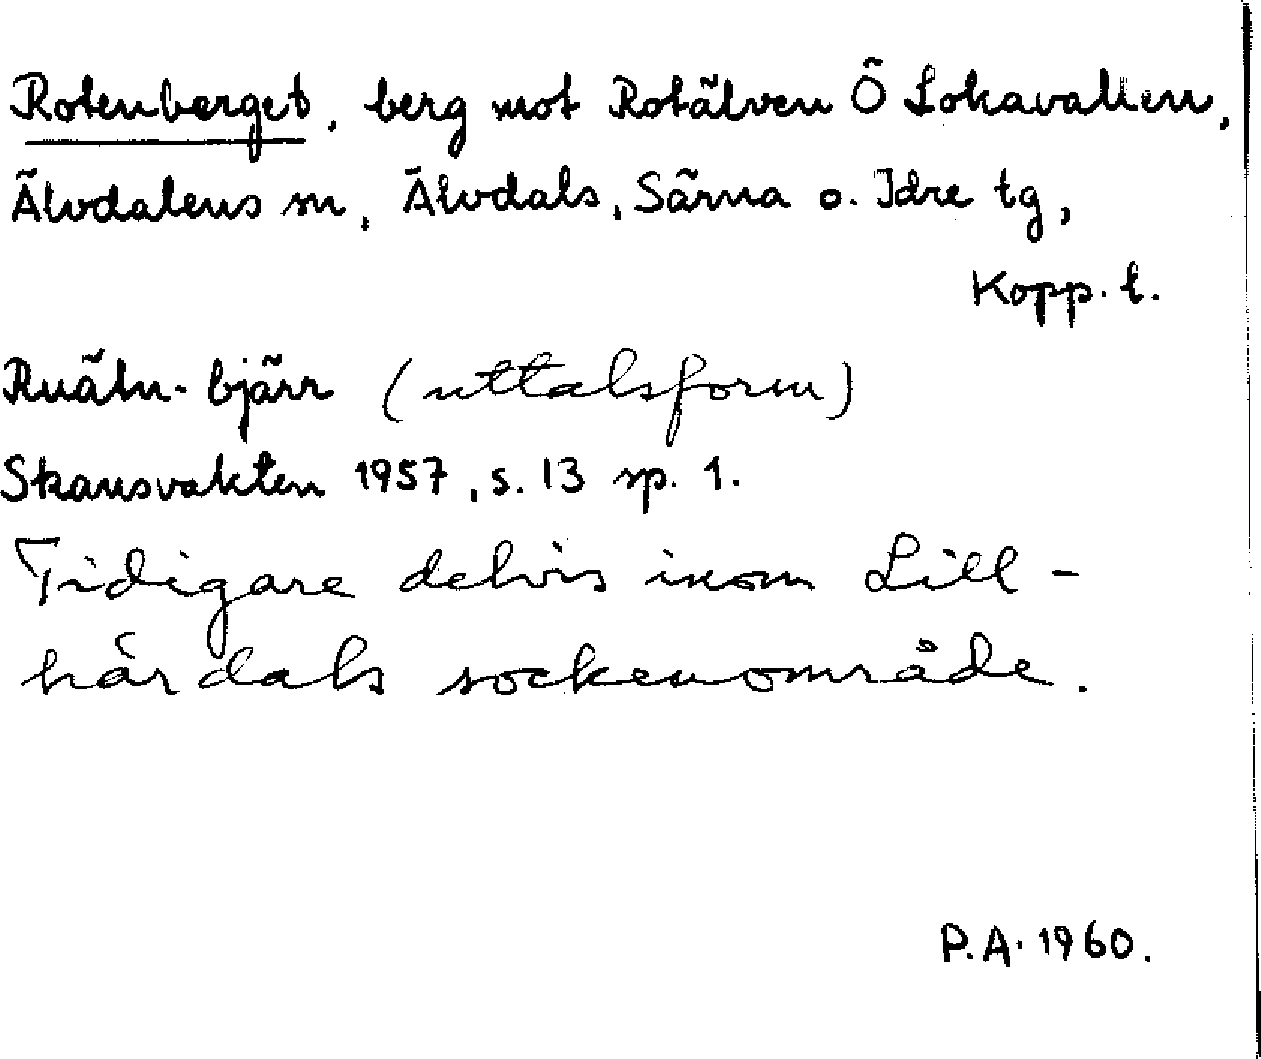 Rotenberget, berg mot Rotälven Ö Lokavallen,
Älvdalens sn, Älvdals, Särna o. Idre tg,
Kopp. l.
Ruätn-bjärr (uttalsform)
Skansvakten 1957, s. 13 sp. 1.
Tidigare delvis inom Lill-
härdals sockenområde.
P.A. 1960.